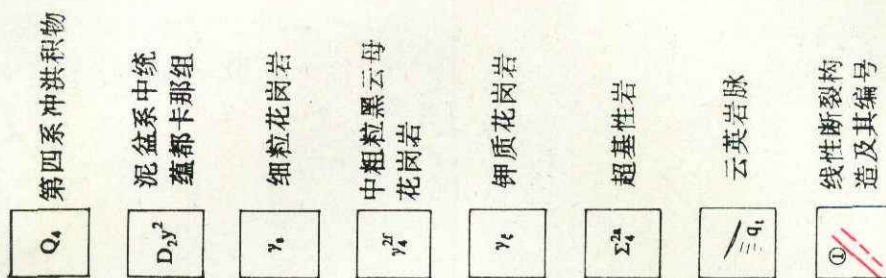 Q₄ 第四系冲洪积物
D₂y² 泥盆系中统
蕴都卡那组
细粒花岗岩
γ₄²ᶠ 中粗粒黑云母
花岗岩
钾质花岗岩
Σ₄²ᵃ 超基性岩
q₁ 云英岩脉
① 线性断裂构
造及其编号